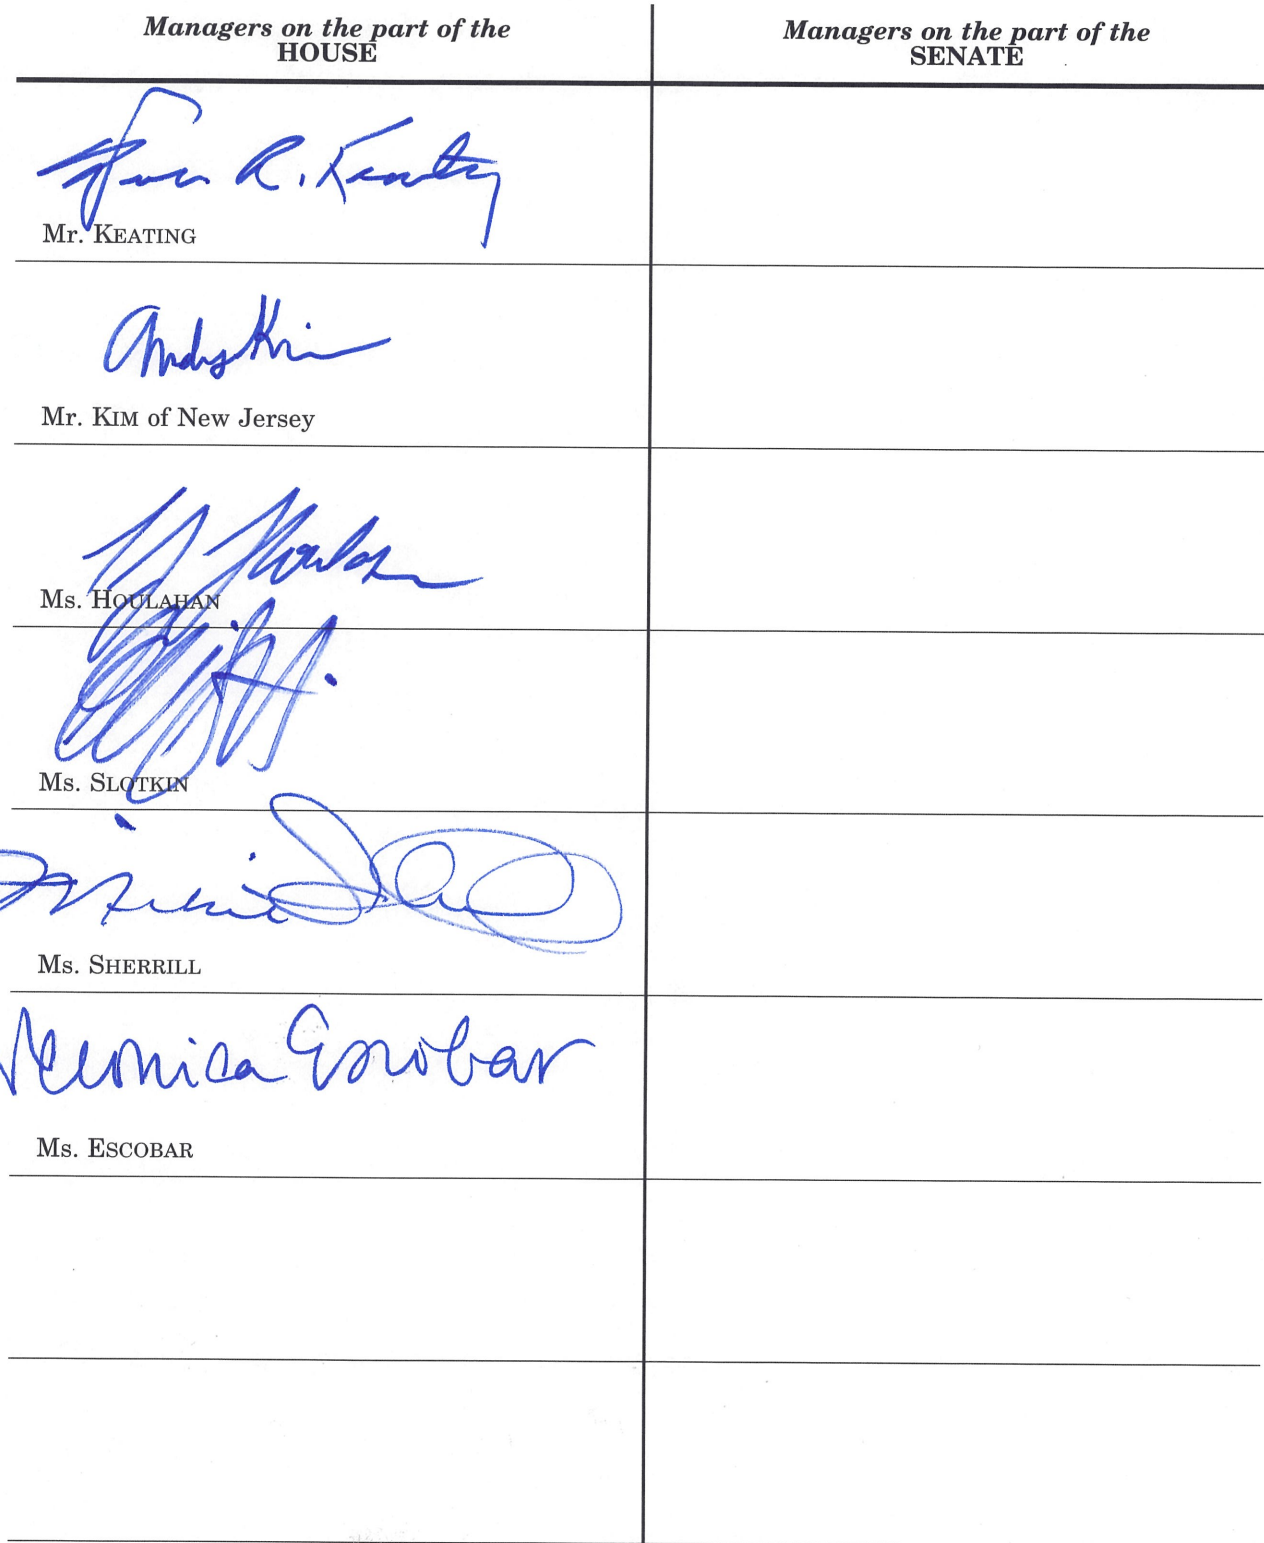 Managers on the part of the
HOUSE
Managers on the part of the
SENATE
R. Keating
Mr. KEATING
Andy Kim
Mr. KIM of New Jersey
Houlahan
Ms. HOULAHAN
Ms. SLOTKIN
Mikie
Ms. SHERRILL
Veronica Escobar
Ms. ESCOBAR